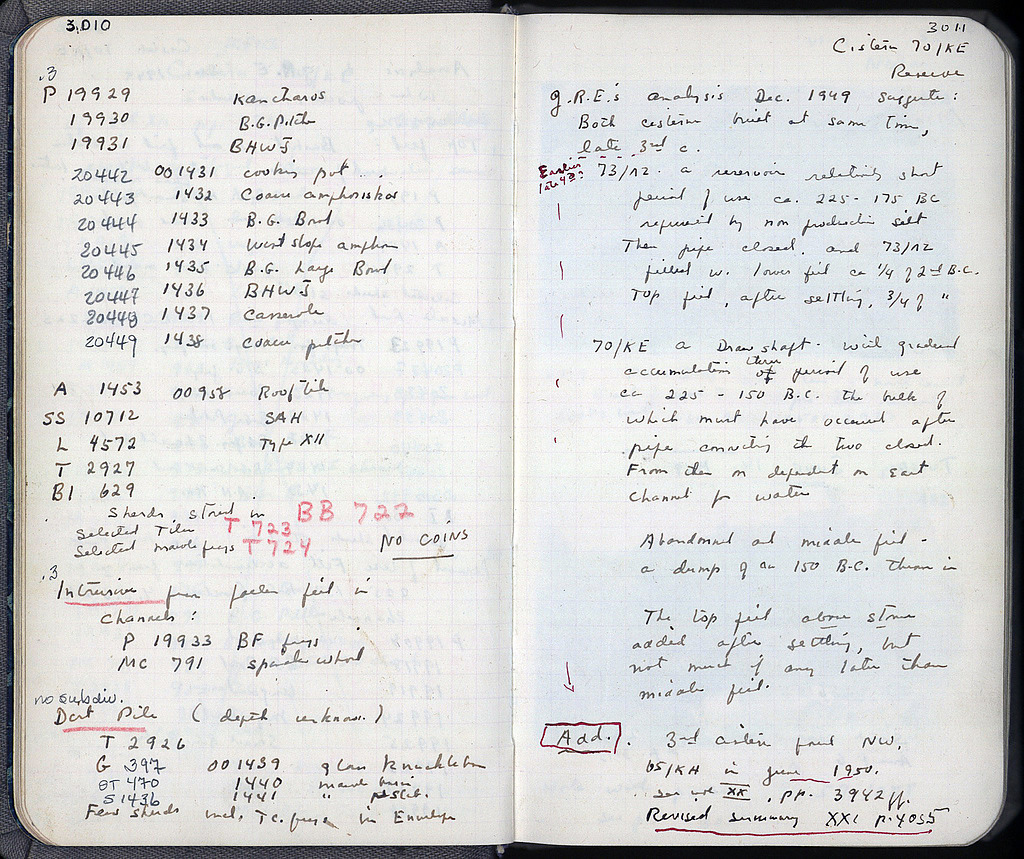 3010
.3
P 19929 Kantharos
19930 B.G. Pitcher
19931 BHWJ
20442 001431 cooking pot
20443 1432 Coarse amphoriskos
20444 1433 B.G. Bowl
20445 1434 West slope amphora
20446 1435 B.G. Large Bowl
20447 1436 BHWJ
20448 1437 Casserole
20449 1438 Coarse pitcher
A 1453 00958 Rooftile
SS 10712 SAH
L 4572 Type XII
T 2927
BI 629
Sherds stored in BB 722
Selected Tiles T 723
Selected marble frags T 724
NO COINS
.3
Intrusive from fallen fill in
channels:
P 19933 BF frags
MC 791 spindle whorl
no subdiv.
Dirt Pile (depth unknown.)
T 2926
G 397 001439 glass Knucklebone
ST 470 1440 marble
S 1436 1441 "
Few sherds incl. T.C. frags in Envelope
3011
Cistern 70/KE
Reserve
G.R.E.'s analysis Dec. 1949 suggests:
Both cisterns built at same time,
late 3rd c.
Earlier
late 4th?
73/12. a reservoir relatively short
period of use ca. 225-175 BC
represented by non productive silt
Then pipe closed, and 73/12
filled w. lower fill ca 1/4 of 2nd B.C.
Top fill, after settling, 3/4 of "
70/KE a Draw shaft. with gradual
accumulation thru period of use
ca 225 - 150 B.C. the bulk of
which must have occurred after
pipe connecting the two closed.
From then on dependent on East
Channel for water
Abandoned and middle fill -
a dump of ca 150 B.C. thrown in
The top fill above stone
added after settling, but
not much if any later than
middle fill.
Add. 3rd cistern found NW.
65/KH in June 1950.
see XX, pp. 3942 ff.
Revised summary XXI p. 4055